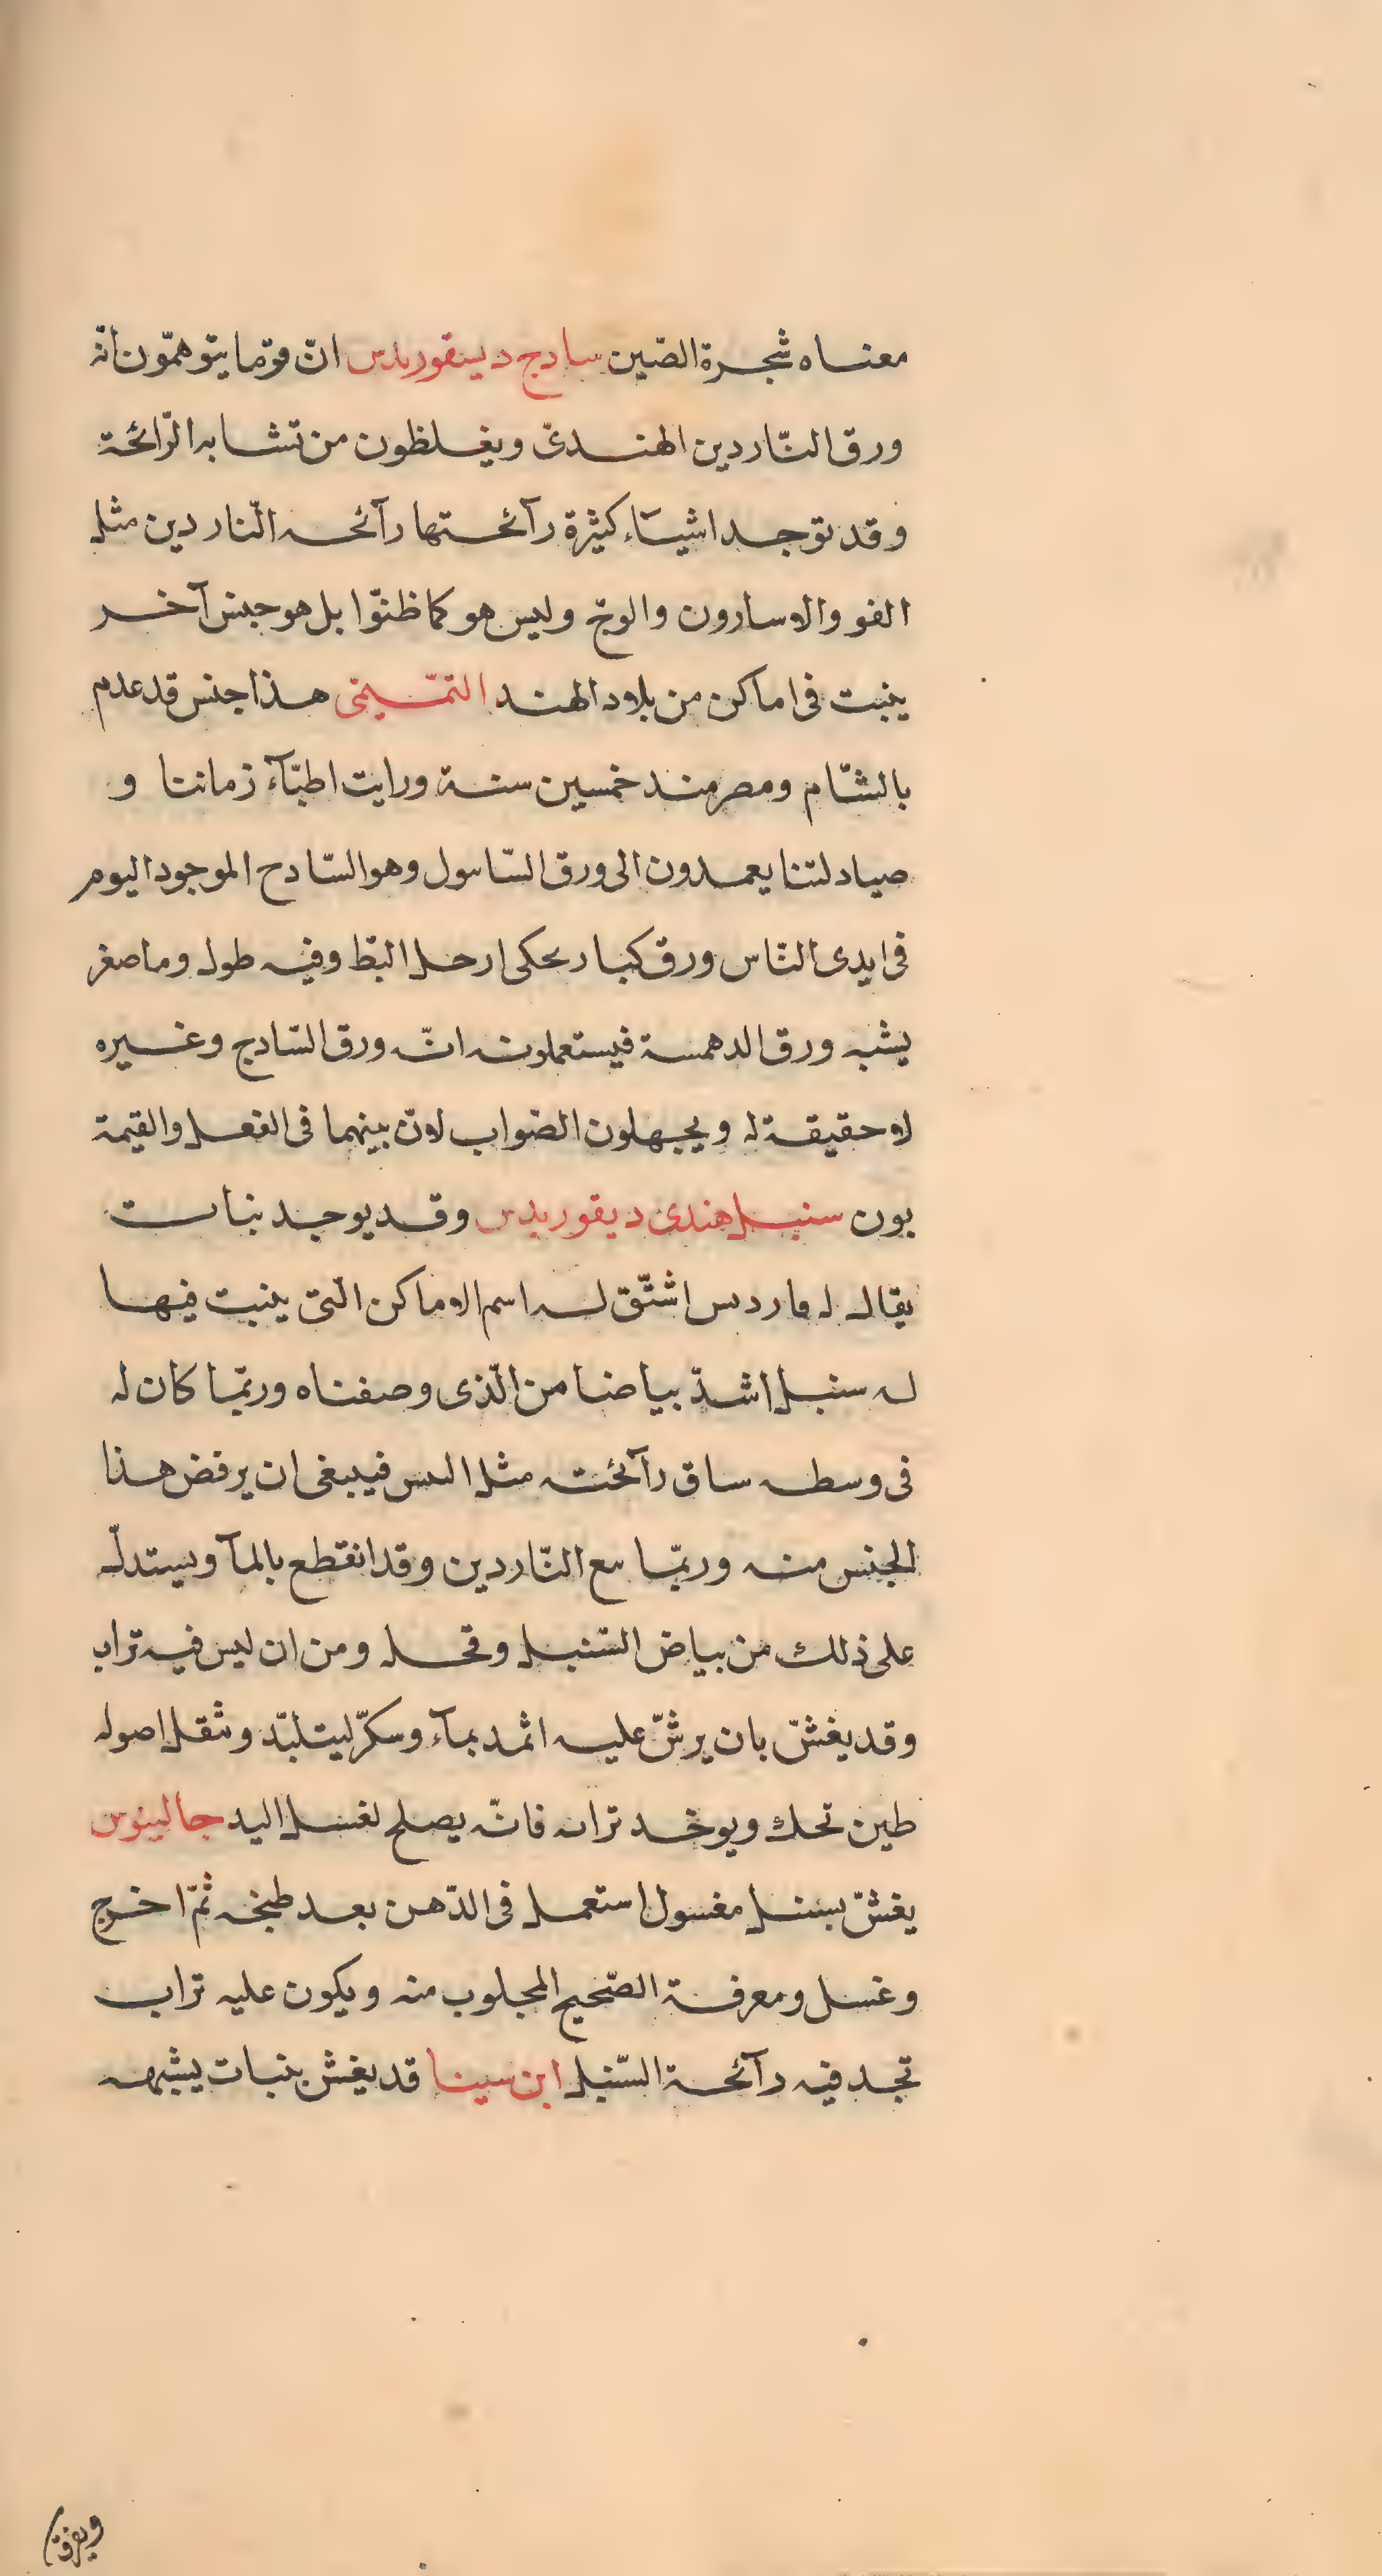 معناه شجرة الصّين سادج ديسقوريدس انّ قوما يتوهمّون انّه
ورق النّاردين الهندىّ ويغلظون من تشابه الرّائحة
وقد توجد اشيآء كثيرة رآئحتها رآئحه النّاردين مثل
الفو والاسارون والوجّ وليس هو كما ظنوّا بل هو جنس آخر
ينبت فى اماكن من بلاد الهند التمّيمى هذا جنس قد عدم
بالشّام ومصر مند خمسين سنة ورايت اطبّآء زماننا و
صيادلتنا يعمدون الى ورق السّاسول وهو السّادح الموجود اليوم
فى ايدى النّاس ورق كبار يحكى ارحل البّط وفيه طول وما صغر
يشبه ورق الدهمسة فيستعملونه انّه ورق السّادج وغيره
لا حقيقة له ويجهلون الصّواب لانّ بينهما فى الفعل والقيمة
بون سنبل هندى ديقوريدس وقد يوجد نبات
يقال له اشتّق له اسم الاماكن الّتى ينبت فيها
له سنبل اشدّ بياضا من الّذى وصفناه وربّما كان له
فى وسطه ساق رآئحته مثل فيبغى ان يرفض هذا
الجنس منه وربّما بيع النّاردين وقد انقطع بالمآ ويستدلّ
على ذلك من بياض السّنبل وقحله ومن ان ليس فيه تراب
وقد يغشّ بان يرشّ عليه اثمد بمآء وسكرّ ليتلبّد وثقل اصوله
طين تحك ويوخد ترابه فانّه يصلح لغسل اليد جالينوس
يغشّ بسنبل مغسول استعمل فى الدّهن بعد طبخه ثمّ اخرج
وغسل ومعرفة الصّحيح المجلوب منه ويكون عليه تراب
تجد فيه رآئحة السّنبل ابن سينا قد يغش بنبات يشبهه